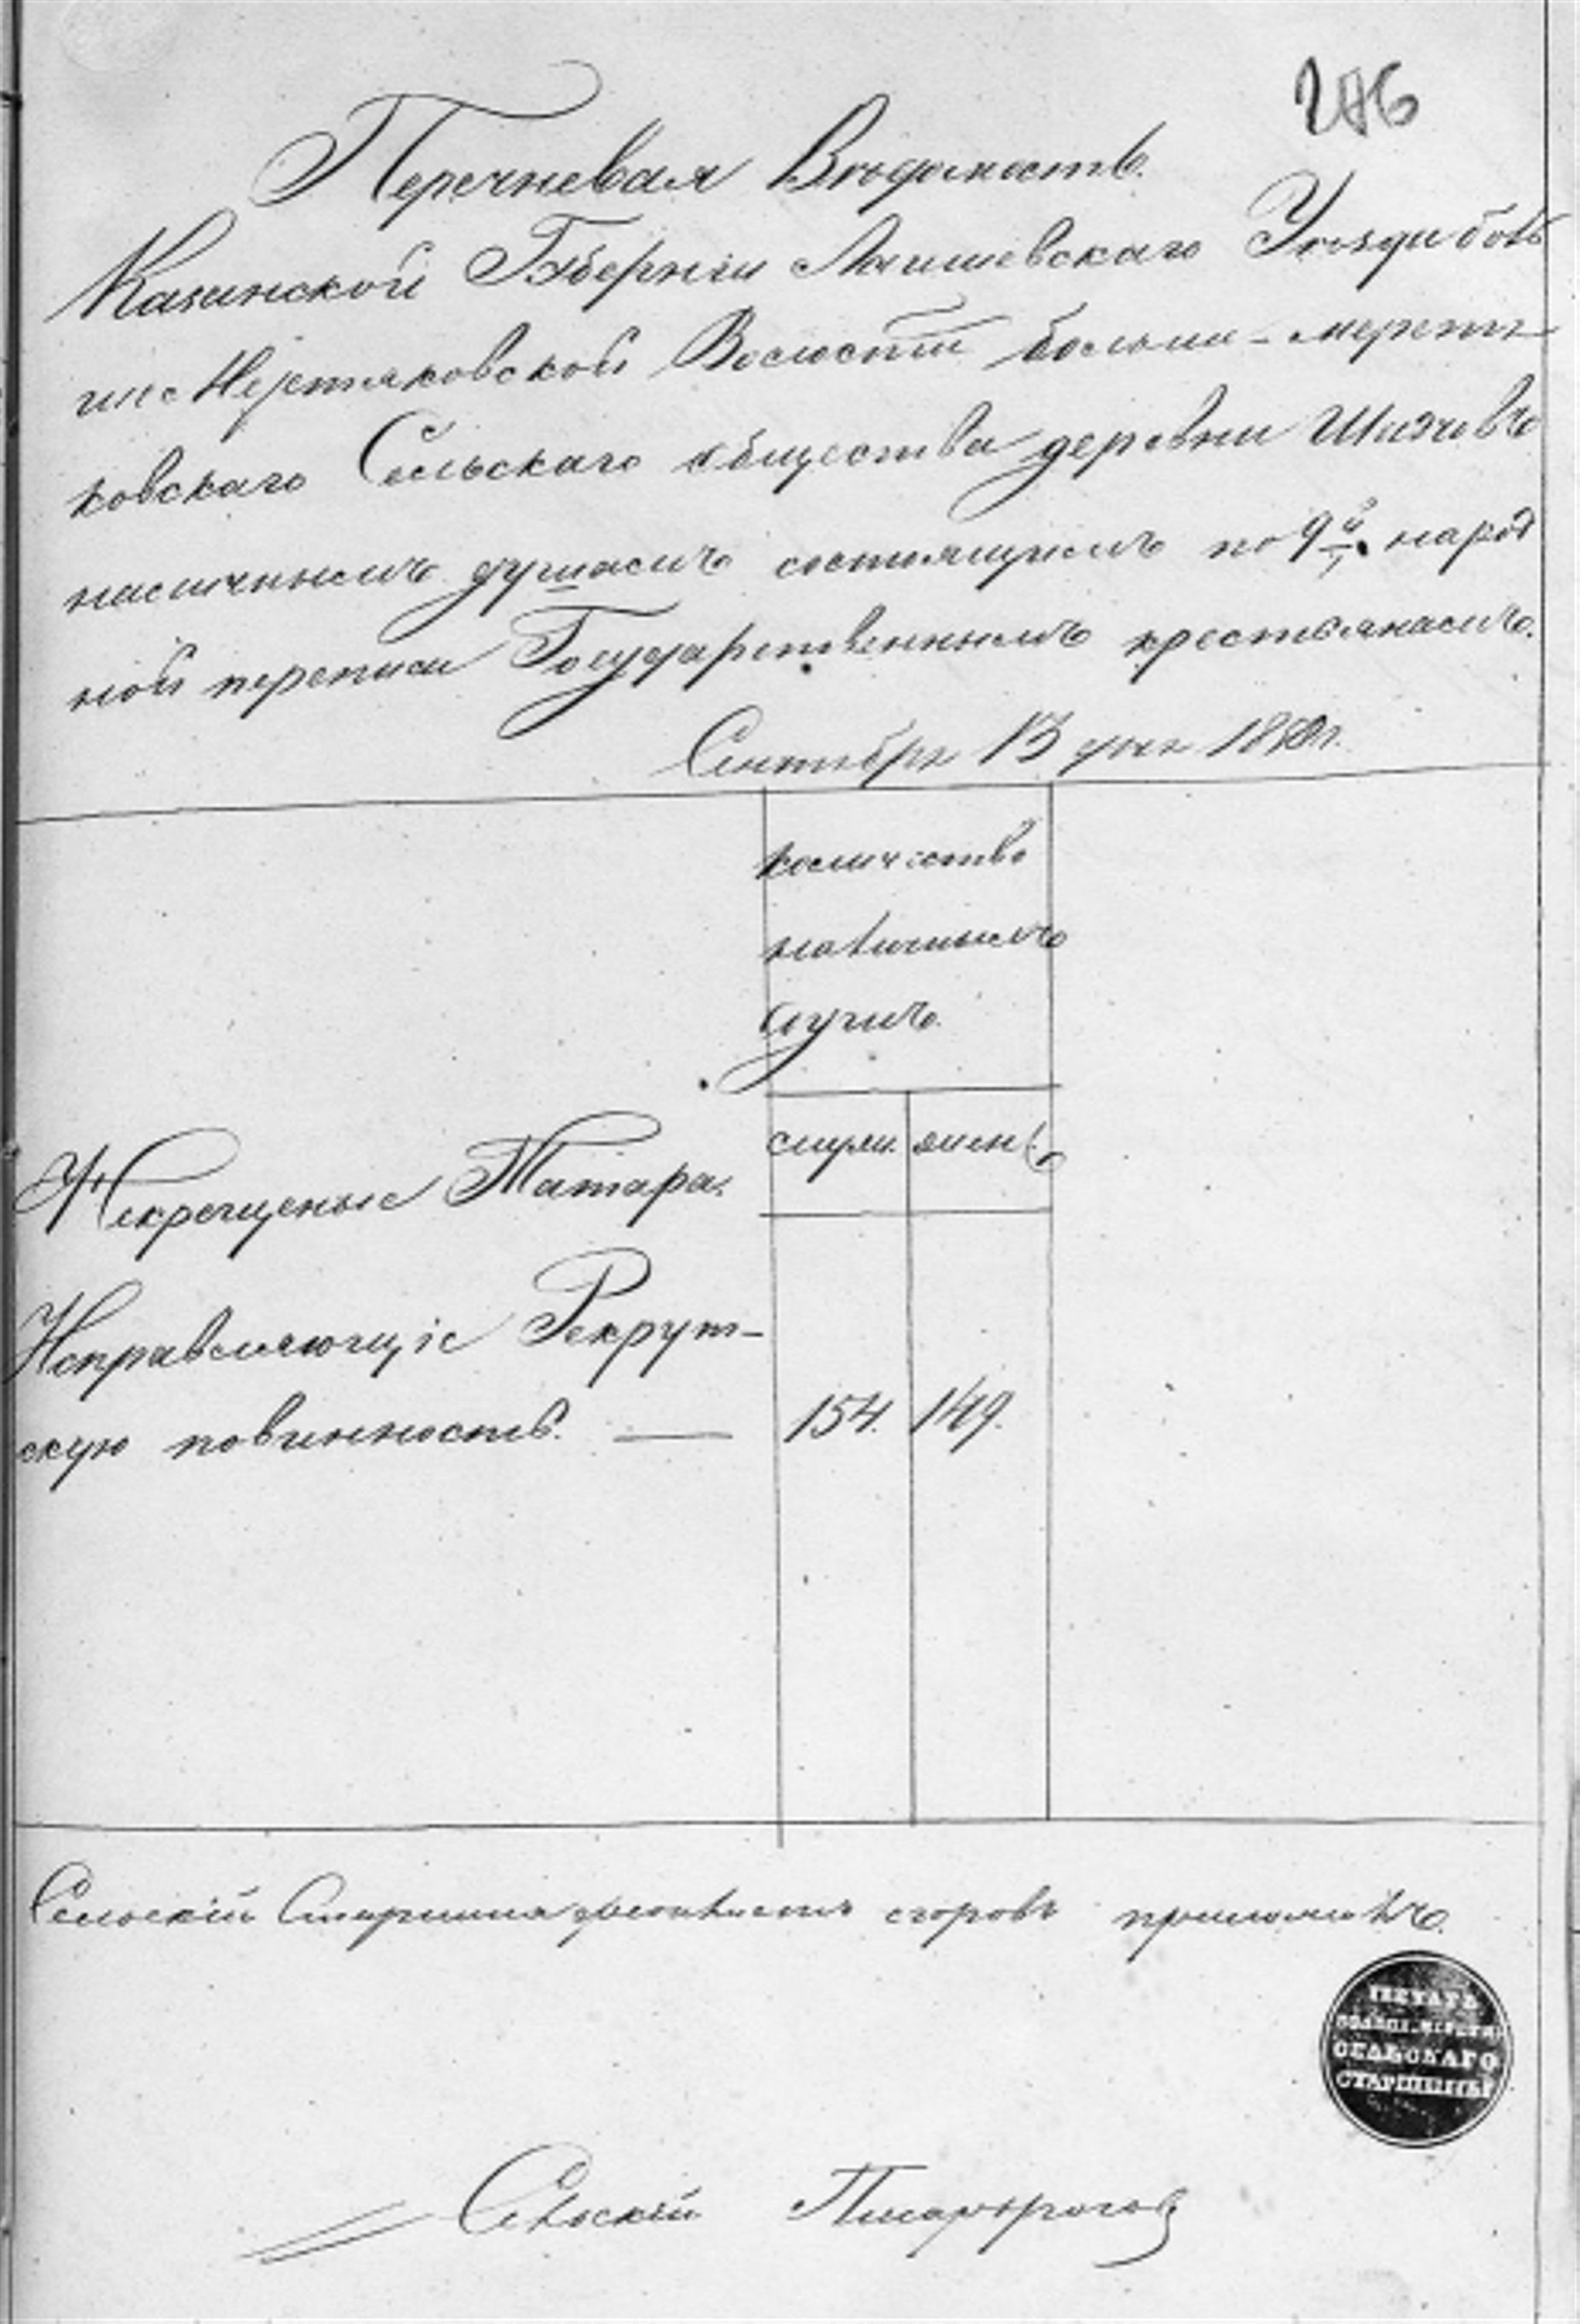 Перечневая Вѣдомость.
Казанской Губерніи Лаишевскаго Уѣзда боль
ше Меретяковской Волости больше-мерети-
ковскаго Сельскаго общества деревни
наличнымъ душамъ состоящимъ по 9й народ
ной переписи Государственнымъ крестьянамъ.
Сентябрь 13 дня 1850г.
количество
наличныхъ
душъ.
мужс. женс.
Некрещеные Татара.
Исправляющіе Рекрут-
скую повинность. — 154. 149.
Сельскій Старшина егоровъ приложилъ.
ПЕЧАТЬ
СЕЛЬСКАГО
СТАРШИНЫ
Сельскій Писарь